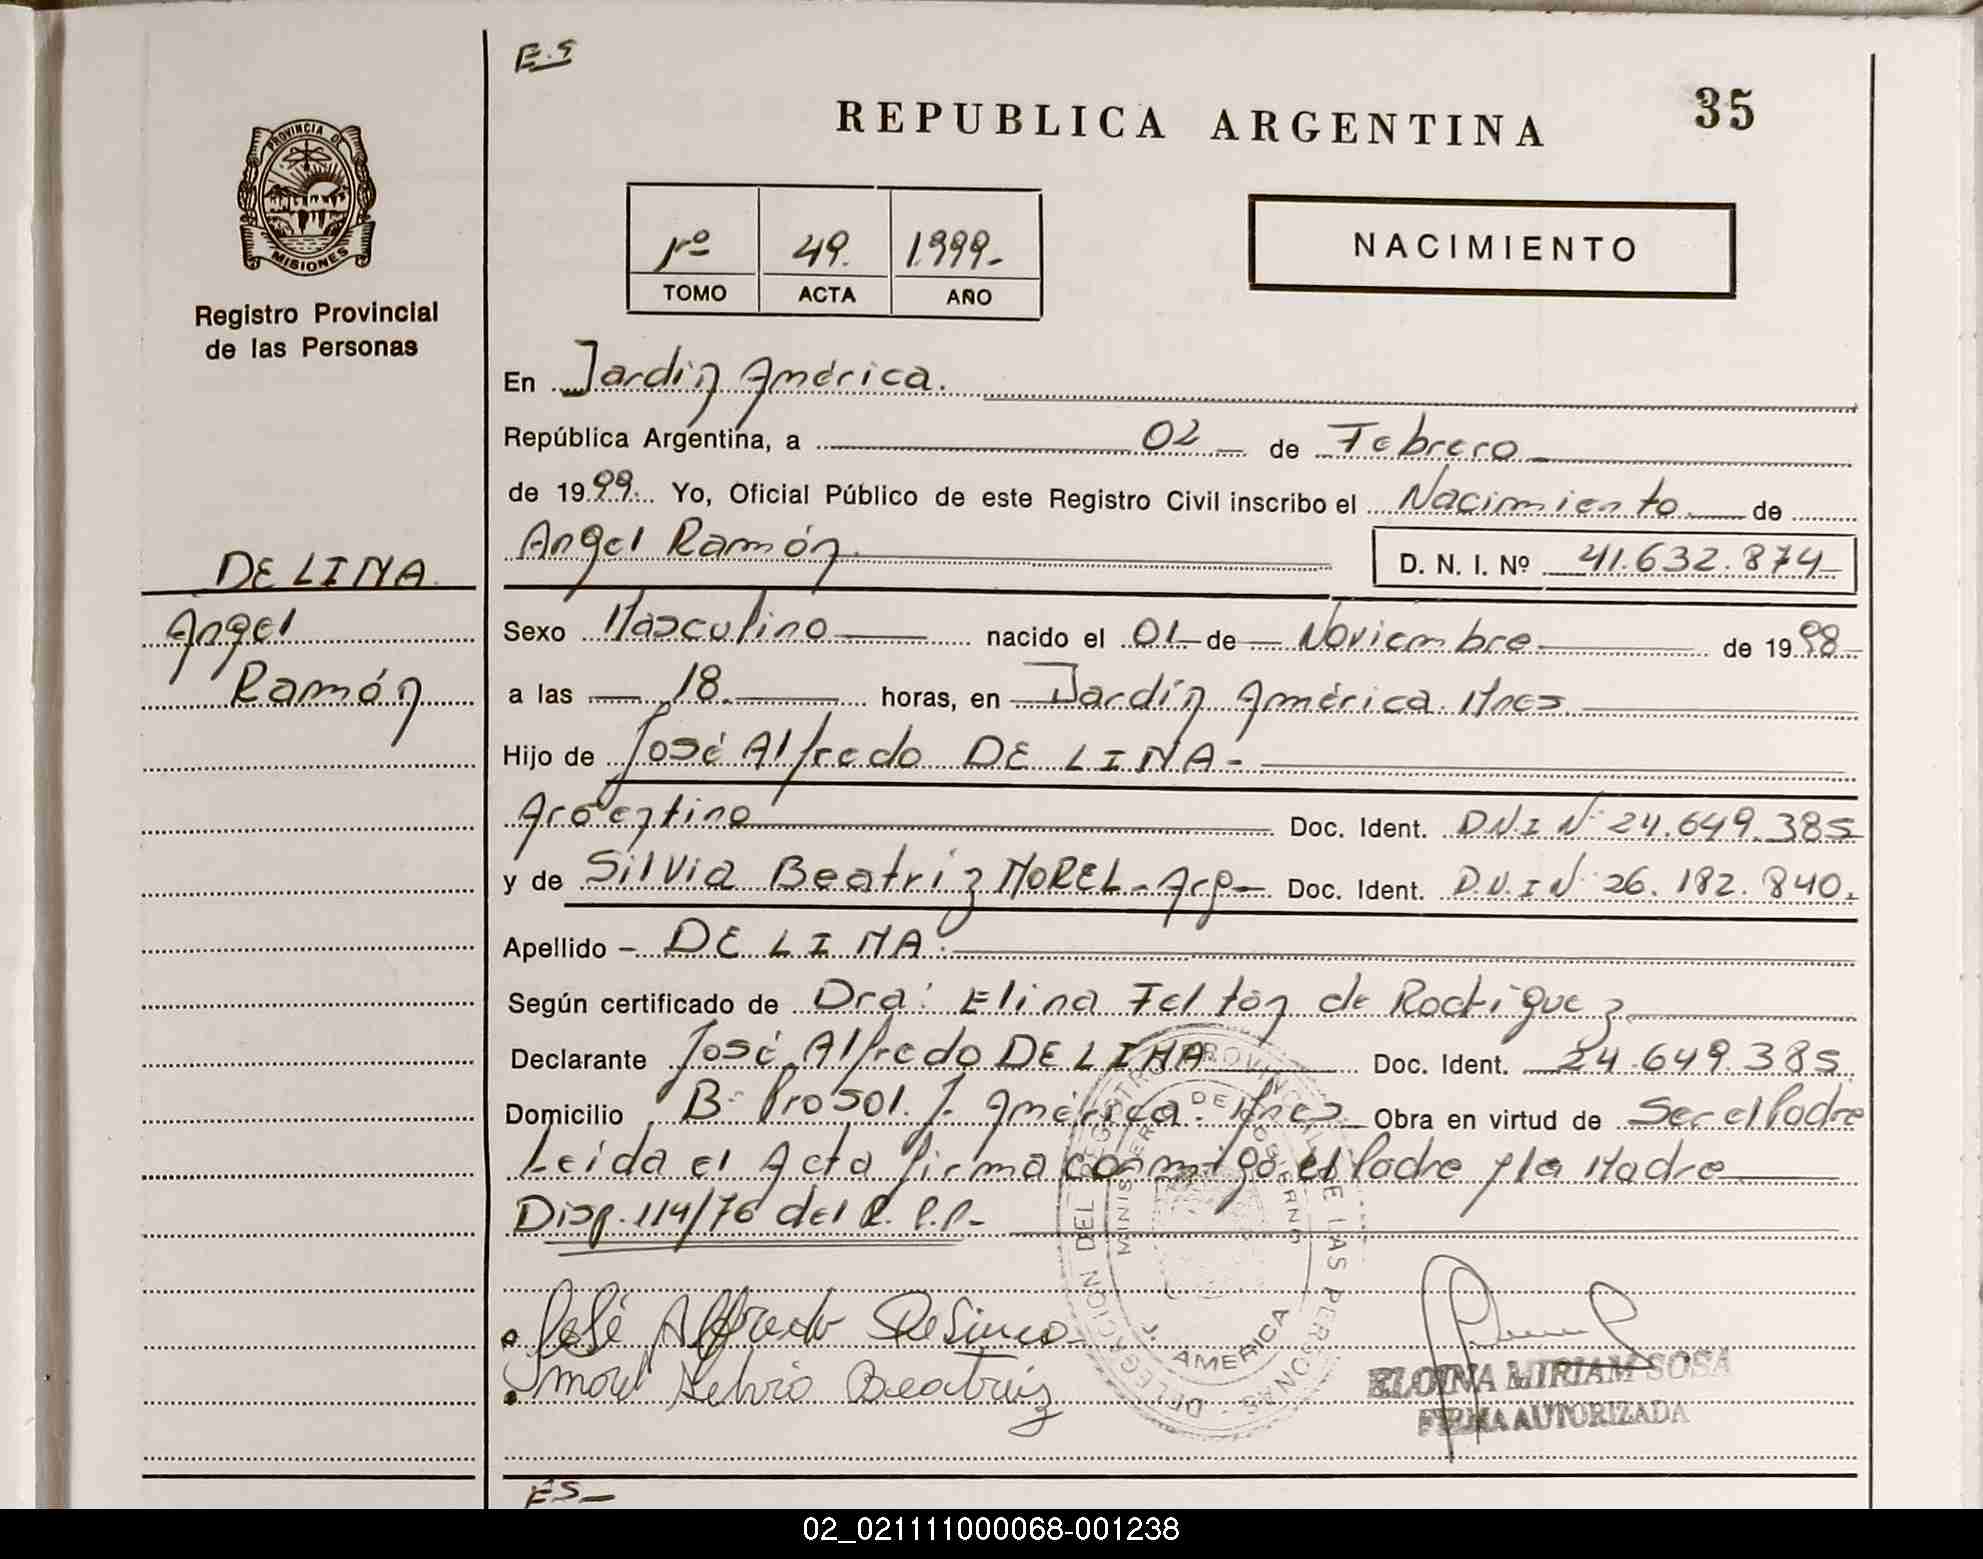 E.S
REPUBLICA ARGENTINA
35
PROVINCIA DE
MISIONES
Registro Provincial
de las Personas
1º 49. 1.999-
TOMO ACTA AÑO
NACIMIENTO
En Jardín América.
República Argentina, a 02 de Febrero
de 1999. Yo, Oficial Público de este Registro Civil inscribo el Nacimiento de
Angel Ramón
D. N. I. Nº 41.632.874
DE LIMA
Angel
Ramón
Sexo Masculino nacido el 01 de Noviembre de 1998
a las 18. horas, en Jardín América. Mnes
Hijo de José Alfredo DE LIMA-
Argentino Doc. Ident. D.N.I Nº 24.649.385
y de Silvia Beatriz MOREL- Arg- Doc. Ident. D.N.I Nº 26.182.840.
Apellido - DE LIMA.
Según certificado de Dra: Elina Feltón de Rodríguez
Declarante José Alfredo DE LIMA Doc. Ident. 24.649.385
Domicilio Bº Prosol. J. América. Mnes Obra en virtud de Ser el Padre
Leída el Acta firma conmigo el Padre y la Madre
Disp. 114/76 del R.P.P.-
José Alfredo
Morel Silvia Beatriz
DELEGACION DEL REGISTRO PROVINCIAL DE LAS PERSONAS
MINISTERIO DE GOBIERNO
J. AMERICA
ELOINA MIRIAM SOSA
FIRMA AUTORIZADA
ES-
02_021111000068-001238